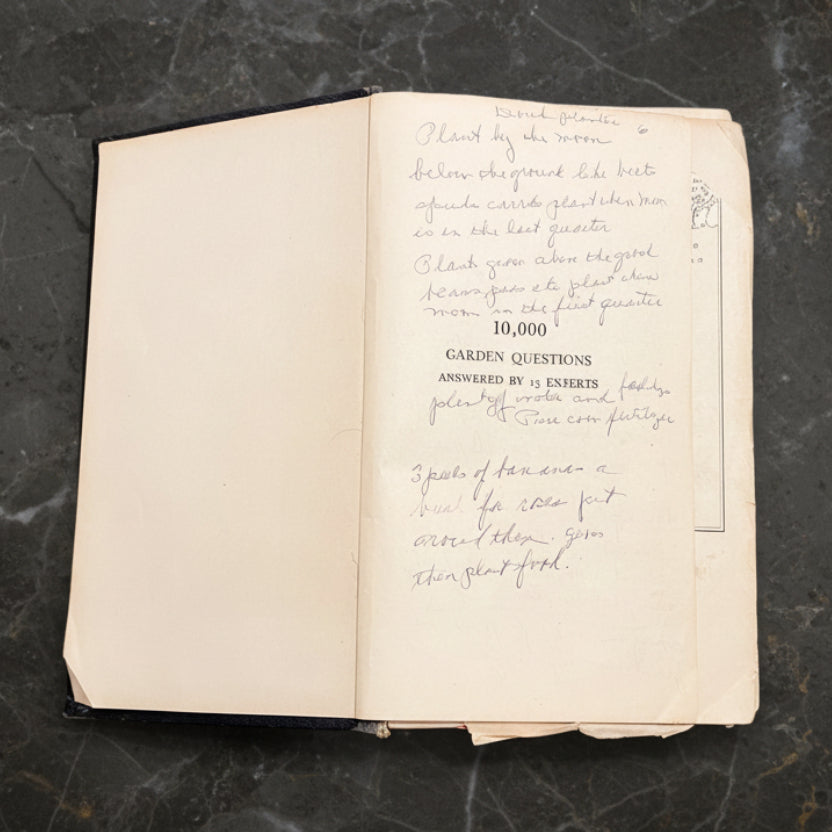 Plant by the moon 6
below the ground like beets
spuds carrots plant when moon
is in the last quarter
Plants grow above the
beans, peas etc plant when
moon in the first quarter
10,000
GARDEN QUESTIONS
ANSWERED BY 15 EXPERTS
plenty of water and
corn fertilizer
3 peels of bananas a
for roses put
around them. gives
them plant food.